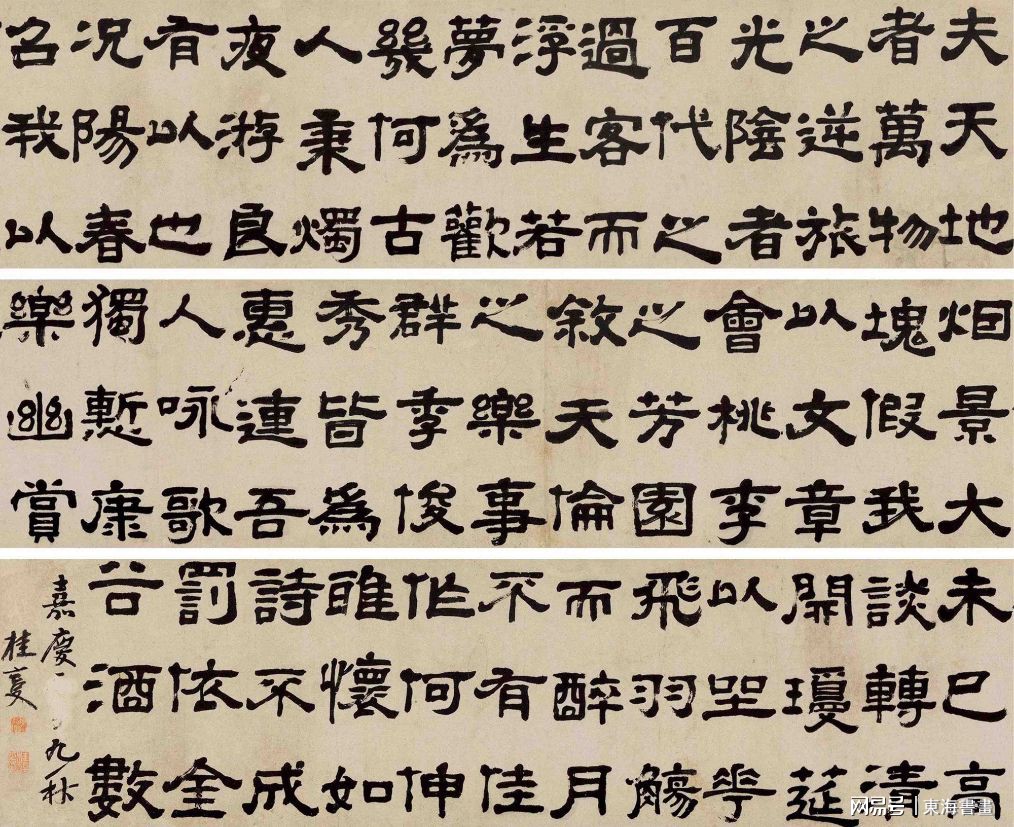 夫天地
者萬物
之逆旅
光陰者
百代之
過客而
浮生若
夢為歡
幾何古
人秉燭
夜游良
有以也
况陽春
召我以
烟景大
塊假我
以文章
會桃李
之芳園
敘天倫
之樂事
群季俊
秀皆為
惠連吾
人咏歌
獨慙康
樂幽賞
未已高
談轉清
開瓊莚
以坐花
飛羽觴
而醉月
不有佳
作何伸
雅懷如
詩不成
罰依金
谷酒數
嘉慶 九秋
桂
网易号 東海書畫